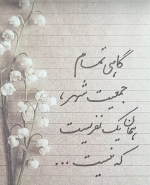 گاهی تمام
جمعیت شهر،
همان یک نفریست
که نیست ...